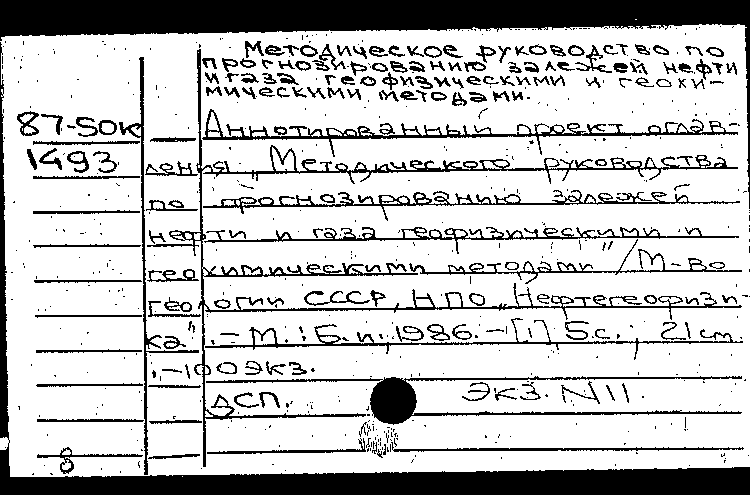 Методическое руководство по
прогнозированию залежей нефти
и газа геофизическими и геохи-
мическими методами.
87-50к Аннотированный проект оглав-
1493 ления „Методического руководства
по прогнозированию залежей
нефти и газа геофизическими и
геохимическими методами" / М-во
геологии СССР, НПО „Нефтегеофизи-
ка". - М. : Б. и., 1986. - [1], 5 с. ; 21 см.
. - 100 экз.
ДСП. Экз. N 11.
8